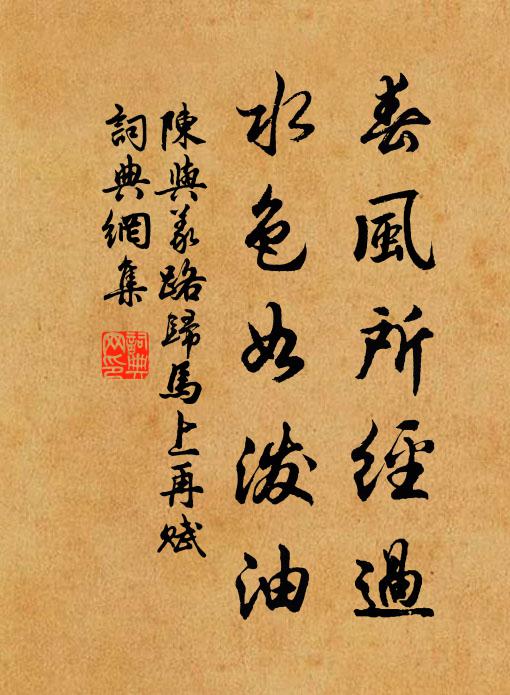 春風所經過
水色如潑油
陳與義路歸馬上再賦
詞典網集
詞典
网印